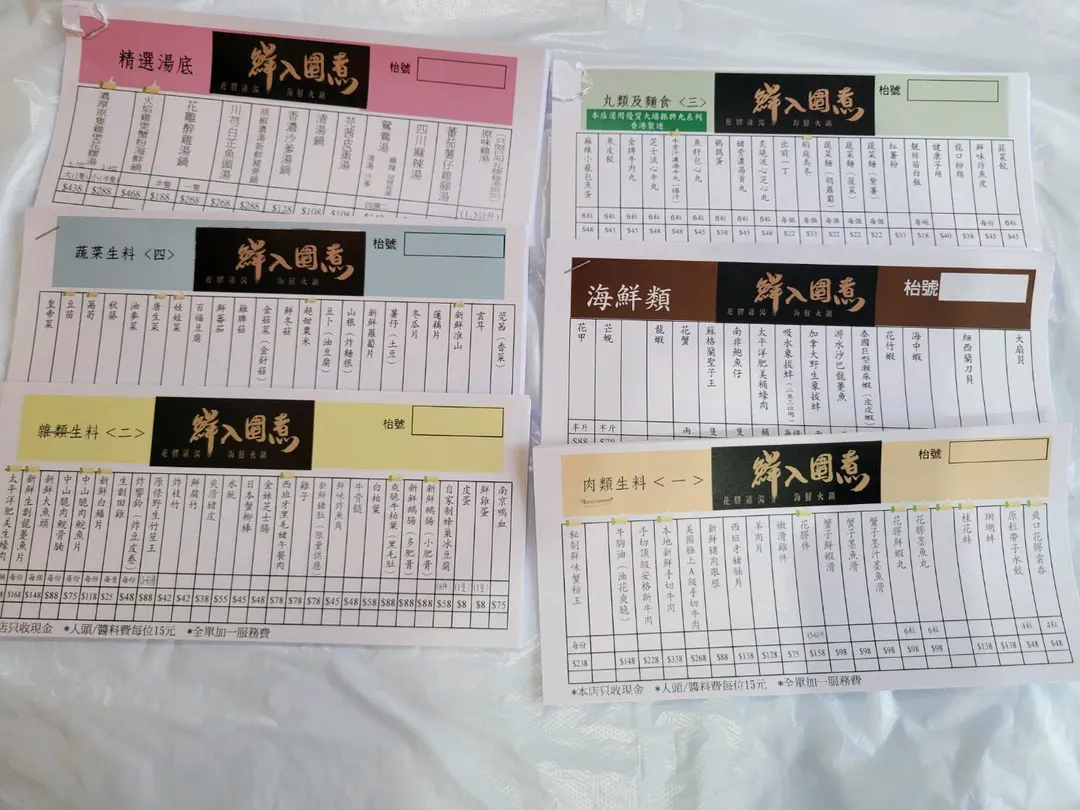 精選湯底
鮮入圍煮
花膠雞湯 海鮮火鍋
枱號
濃厚原隻雞煲花膠湯
火焰雞煲蟹粉海鮮鍋
花雕醉雞湯鍋
川芎白芷魚頭湯
胡椒濃湯新鮮豬骨鍋
香濃沙爹湯鍋
清湯鍋
芫茜皮蛋湯
鴛鴦湯
四川麻辣湯
蕃茄薯仔雞腳湯
原味雞湯
$438 $288 $468 $188 $268 $268 $288 $128 $108 $108
半隻 一隻
四選二
(1.5公升)
蔬菜生料<四>
鮮入圍煮
花膠雞湯 海鮮火鍋
枱號
皇帝菜
豆苗
萵筍
秋葵
油麥菜
唐生菜
娃娃菜
百福豆腐
鮮蕃茄
雞髀菇
金菇菜(金針菇)
鮮冬菇
超甜粟米
豆卜(油豆腐)
山根(炸麵根)
新鮮蘿蔔片
薯仔(土豆)
冬瓜片
蓮藕片
新鮮淮山
雲耳
芫茜(香菜)
雜類生料<二>
鮮入圍煮
花膠雞湯 海鮮火鍋
枱號
太平洋肥美生蠔肉
新鮮生劏龍躉魚片
新鮮大魚頭
中山脆肉鯇骨腩
中山脆肉鯇魚片
新鮮白鱔片
生劏田雞
炸響鈴(炸豆皮卷)
原條野生竹笙王
炸枝竹
鮮腐竹
爽滑豬皮
水魷
日本蟹柳棒
金妹芝士腸
西班牙黑毛豬午餐肉
雞子
新鮮豬肚(限量供應)
鮮味炸魚角
牛骨髓
白柏葉
爽脆牛柏葉(黑毛肚)
新鮮鵝腸(多肥膏)
新鮮鵝腸(小肥膏)
自家制蜂巢冰豆腐
皮蛋
鮮雞蛋
南京鴨血
$168 $148 $88 $75 $118 $25 $48 $88 $42 $42 $38 $55 $45 $48 $78 $78 $78 $45 $48 $58 $88 $88 $88 $58 $8 $8 $75
店只收現金 *人頭/醬料費每位15元 *全單加一服務費
丸類及麵食<三>
本店選用優質火鍋聯丸系列
香港製造
鮮入圍煮
花膠雞湯 海鮮火鍋
枱號
麻辣小籠包魚蛋
魚皮餃
金牌牛肉丸
芝士流心牛丸
牛骨汁濃湯牛丸(爆汁)
魚籽包心丸
鍋鵝蛋
豬骨濃湯貢丸
炙燒流心芝心丸
出前一丁
稻庭烏冬
蔬菜麵(胡蘿蔔)
蔬菜麵(菠菜)
蔬菜麵(紫薯)
紅薯粉
靚絲苗白飯
健康芋絲
龍口粉絲
鮮味炸魚皮
蔬菜餃
6粒 6粒 6粒 6粒 6粒 6粒 8粒 6粒 6粒 每個 每個 每個 每個 每個 每碗 每份 6粒
$48 $45 $45 $48 $48 $45 $38 $45 $48 $22 $33 $22 $22 $22 $33 $18 $40 $38 $45 $45
海鮮類
鮮入圍煮
花膠雞湯 海鮮火鍋
枱號
花甲
芒蜆
龍蝦
花蟹
蘇格蘭聖子王
南非鮑魚仔
太平洋肥美桶蠔肉
吸水象拔蚌(二至三位用)
加拿大野生象拔蚌
游水沙巴龍躉魚
泰國巨型瀨尿蝦(皮皮蝦)
花竹蝦
海中蝦
紐西蘭刀貝
大扇貝
半斤 半斤 兩 隻 隻 桶
$88 $78
肉類生料<一>
鮮入圍煮
花膠雞湯 海鮮火鍋
枱號
秘制鮮味蟹粉王
牛胸油(油花爽脆)
手切頂級安格斯牛肉
本地新鮮手切牛肉
美國極上A級手切牛肉
新鮮豬肉眼根
西班牙豬腩片
羊肉片
嫩滑雞件
花膠件
蟹子鮮蝦滑
蟹子墨魚滑
蟹子墨汁墨魚滑
花膠鮮蝦丸
花膠墨魚丸
桂花蚌
珊瑚蚌
原粒帶子水餃
爽口花膠雲吞
每份 6粒 6粒 4粒 4粒
$238 $148 $228 $338 $268 $88 $138 $128 $75 $158 $98 $98 $98 $98 $98 $138 $138 $48 $48
*本店只收現金 *人頭/醬料費每位15元 *全單加一服務費